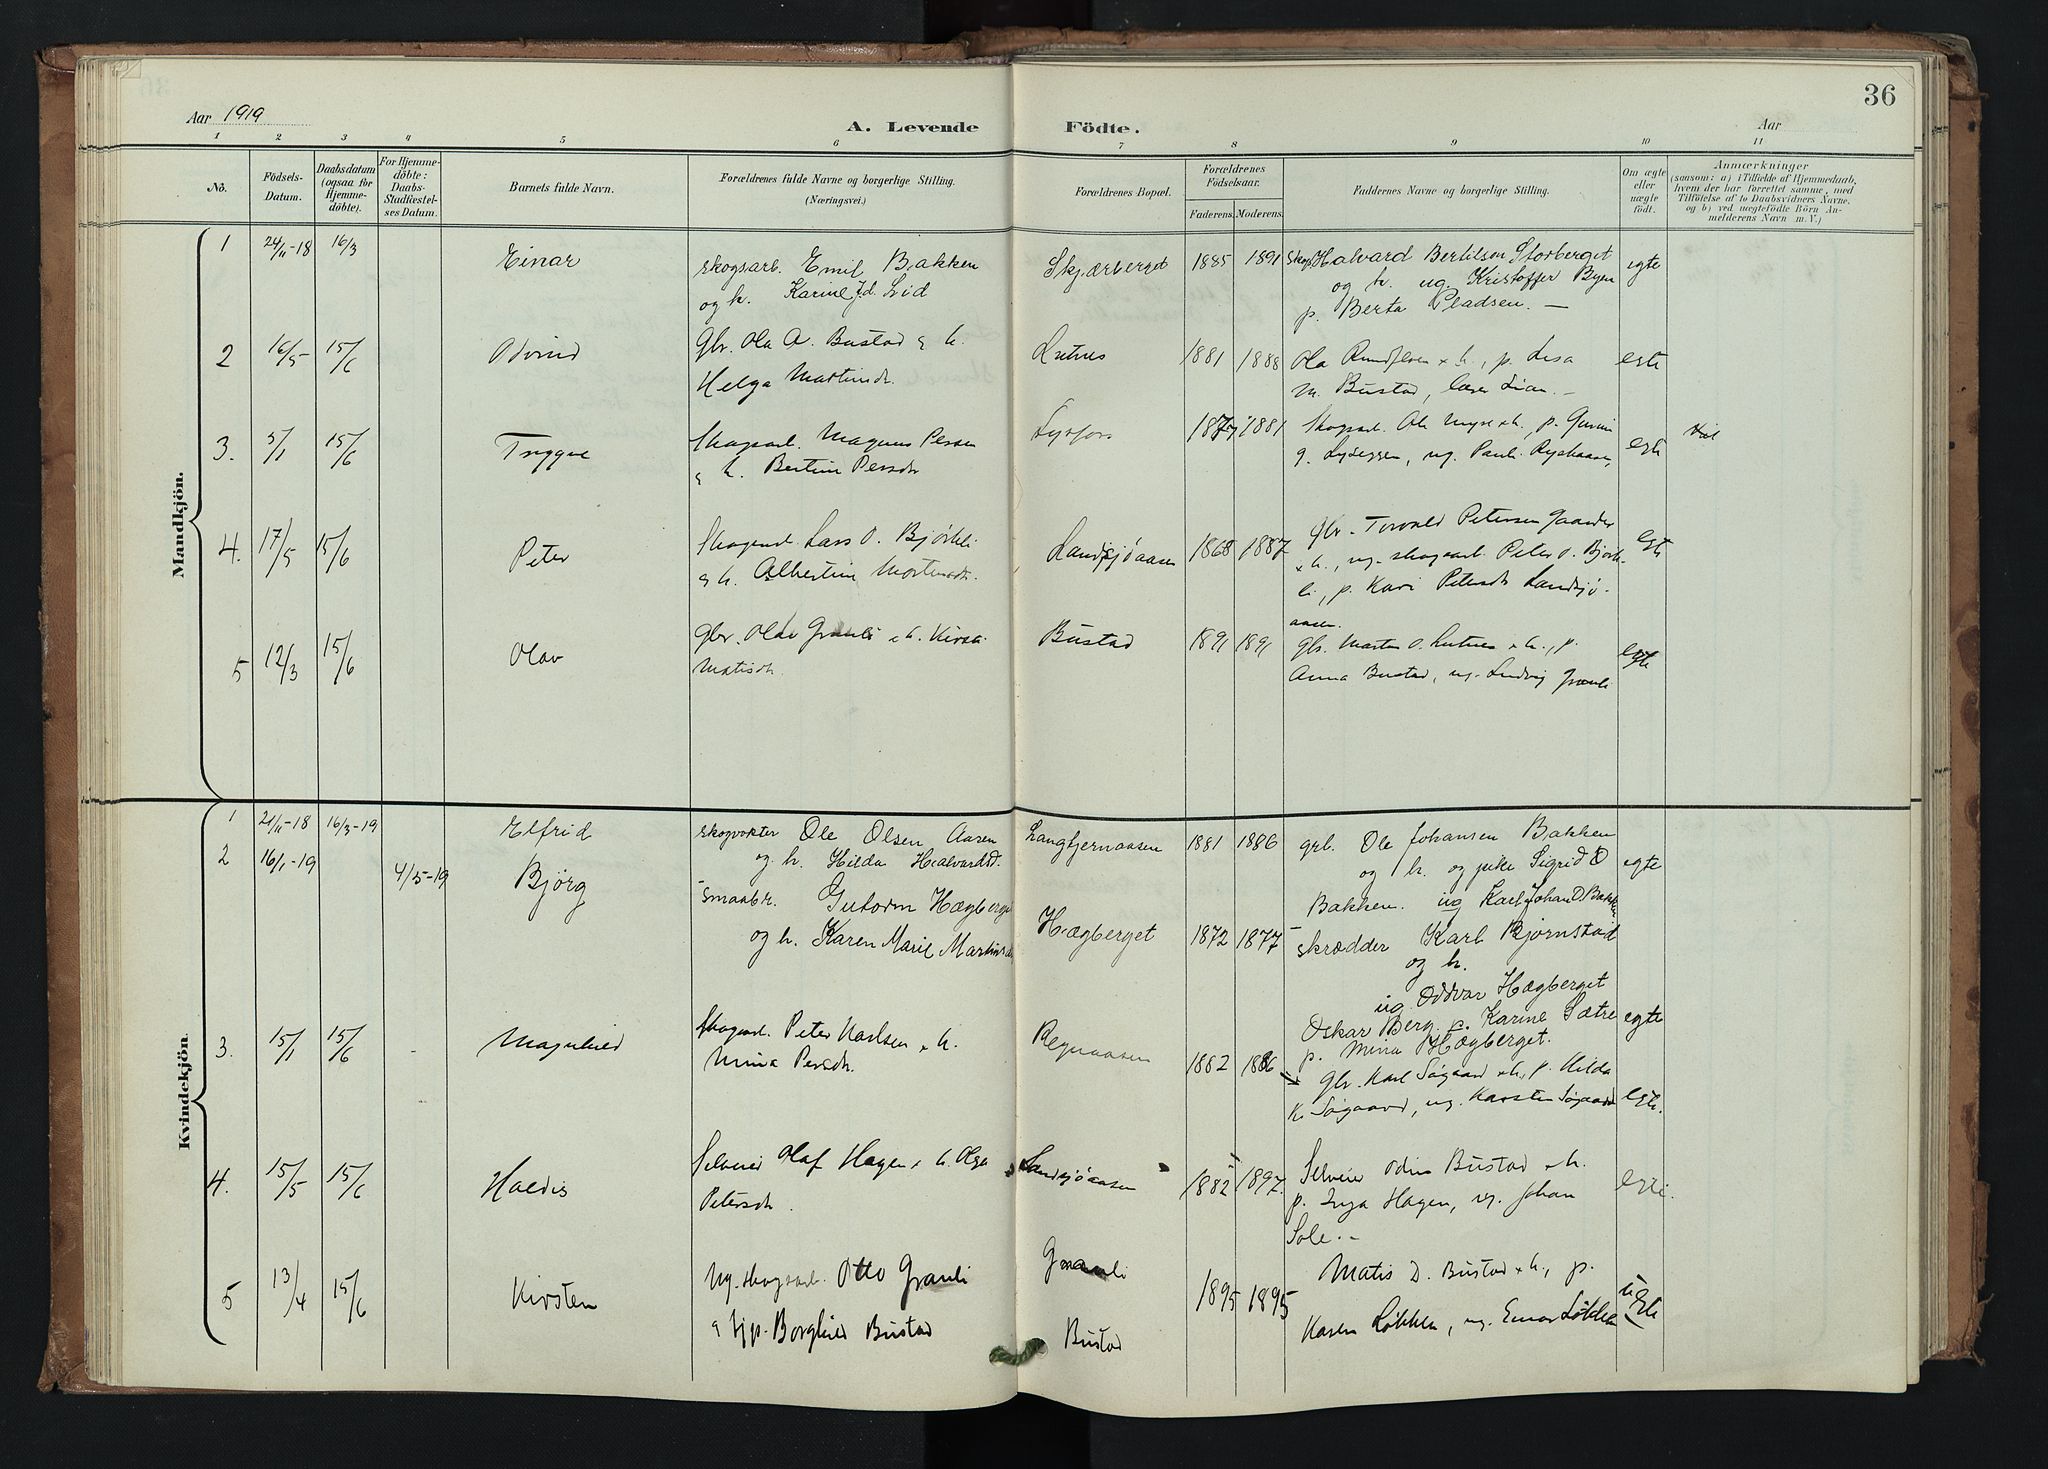 36
Aar 1919
A. Levende Födte.
Aar
1 2 3 4 5 6 7 8 9 10 11
No.
Födsels-Datum.
Daabsdatum (ogsaa for Hjemmedöbte).
For Hjemmedöbte: Daabs-Stadfæstelses Datum.
Barnets fulde Navn.
Forældrenes fulde Navne og borgerlige Stilling. (Næringsvei.)
Forældrenes Bopæl.
Forældrenes Födselsaar.
Faderens. Moderens.
Faddernes Navne og borgerlige Stilling.
Om ægte eller uægte födt.
Anmærkninger
(saasom: a) i Tilfælde af Hjemmedaab, hvem der har forrettet samme, med Tilföielse af to Daabsvidners Navne, og b) ved uægtefödte Börn Anmelderens Navn m. V.)
Mandkjön.
1 24/11-18 16/3 Einar skogsarb. Emil Bakken Skjærberget 1885 1891 Halvard Bertilsen Storberget egte
og h. Karine Jd. Lid og h. ug. Kristoffer Byen
p. Berta Pladsen. —
2 16/5 15/6 Odvind Gbr. Ola A. Bustad & h. Lutnes 1881 1888 Ola Rundfloen & h., p. Lisa egte
Helga Martinsdr. M. Bustad, lærer Lian. —
3. 5/1 15/6 Trygve Skogsarb. Magnus Persen 1881 Skogsarb. Ole Myre & h., p. Gunin egte
& h. Bertine Persdr. ug. Paul
4. 17/5 15/6 Peter Skogsarb. Lars O. Bjørkli Landsjøaasen 1868 1887 gbr. Torvald Petersen Gaander egte
& h. Albertine Mortensdr. & h., ug. skogsarb. Peter O. Bjørk-
li, p. Kari Petersdr. Landsjø-
aasen.
5 12/3 15/6 Olav gbr. Olde Granli & h. Bustad 1891 1891 gbr. Morten O. Lutnes & h., p. egte
Matisdr. Anna Bustad, ug. Ludvig Granli
Kvindekjön.
1 21/11-18 16/3-19 Elfrid skogvokter Ole Olsen Aasen Langtjernaasen 1881 1886 grb. Ole Johansen Bakken
og h. Hilda Halvardsd. og h. og pike Sigrid O egte
Bakken. ug Karl Johan O Bakken
2 16/1-19 4/5-19 Bjørg smaabr. Gutorm Hægberget Hægberget 1872 1877 skrædder Karl Bjørnstad
og h. Karen Marie Martinsdr. og h.
ug Oddvar Hægberget
Oskar Berg p. Karine Sætre egte
p. Mina Hægberget.
3. 15/1 15/6 Magnhild Skogsarb. Peter Karlsen & h. Regnaasen 1882 1886 Gbr. Karl Søgaard & h., p. Hilda
Mina Persdr. K. Søgaard, ug. Karsten Søgaard egte.
4. 15/5 15/6 Haldis Selveier Olaf Hagen & h. Olga Landsjøaasen 1882 1897 Selveier Odin Bustad & h. egte.
Petersdr. p. Inga Hagen, ug. Johan
Sole. —
5 13/4 15/6 Kirsten Ug. skogsarb. Otto Granli Granli 1895 1895 Matis D. Bustad & h., p. uegte
& tjp. Borghild Bustad Bustad Karen Løkken, ug. Einar Løkken